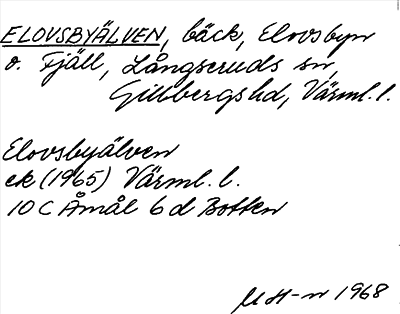 ELOVSBYÄLVEN, bäck, Elovsbyn
o. Fjäll, Långseruds sn,
Gillbergs hd, Värml. l.
Elovsbyälven
ek (1965) Värml. l.
10 C Åmål 6 d Botten
M H-n 1968